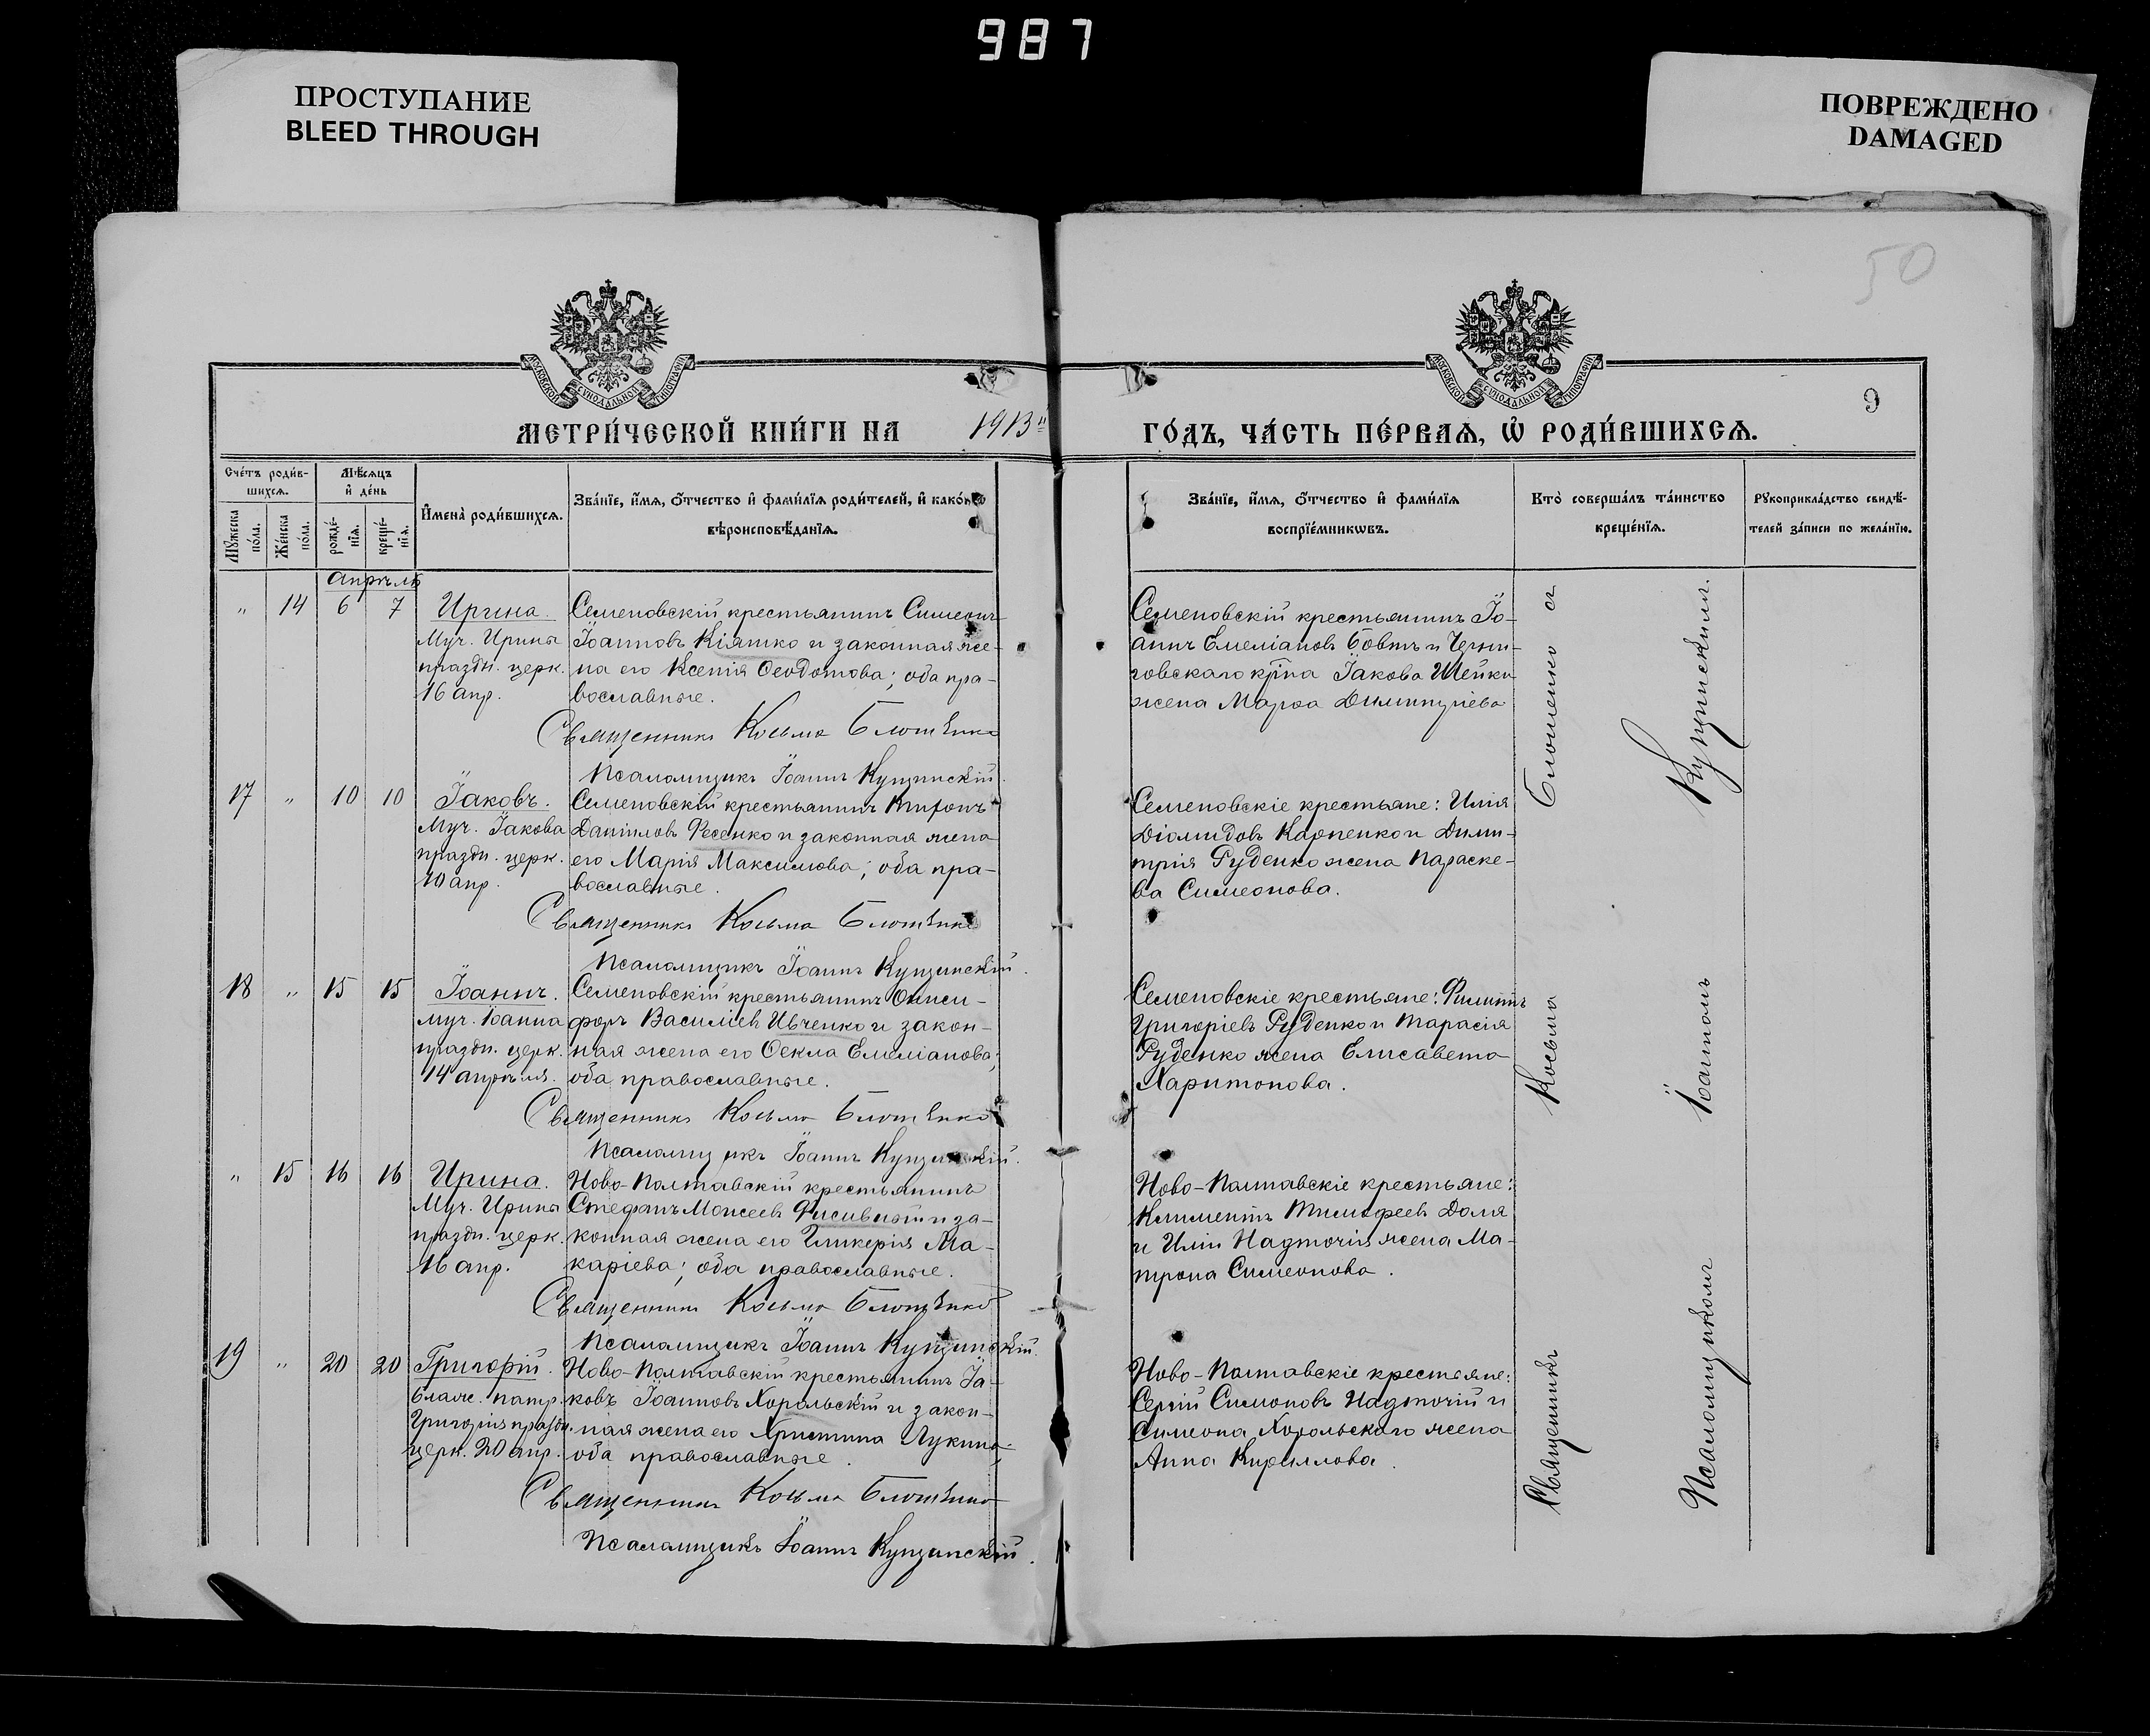 987
ПРОСТУПАНИЕ
BLEED THROUGH
ПОВРЕЖДЕНО
DAMAGED
50
МОСКОВСКОЙ СѴНОДАЛЬНОЙ ТИПОГРАФІИ
МОСКОВСКОЙ СѴНОДАЛЬНОЙ ТИПОГРАФІИ
9
МЕТРИ́ЧЕСКОЙ КНИ́ГИ НА 1913й ГО́ДЪ, ЧА́СТЬ ПЕ́РВАѦ, Ѡ҆ РОДИ́ВШИХСѦ.
Сче́тъ роди́в-
шихсѧ.
Мѣ́сѧцъ
и҆ де́нь
Мꙋ́жеска
по́ла.
Же́нска
по́ла.
рожде́-
нїѧ.
креще́-
нїѧ.
И҆мена̀ роди́вшихсѧ.
Зва́нїе, и҆́мѧ, ѻ҆́тчество и҆ фами́лїѧ роди́телей, и҆ како́гѡ
вѣроисповѣ́данїѧ.
Зва́нїе, и҆́мѧ, ѻ҆́тчество и҆ фами́лїѧ
воспрїе́мникѡвъ.
Кто̀ соверша́лъ та́инство
креще́нїѧ.
Рꙋкоприкла́дство свидѣ́-
телей за́писи по жела́нїю.
Апрѣль
" 14 6 7 Ирина.
Муч. Ирины
праздн. церк.
16 апр.
Семеновскій крестьянинъ Симеонъ
Іоанновъ Кіяшко и законная же-
на его Ксенія Ѳеодотова; оба пра-
вославные.
Священникъ Косьма Блошенко
Псаломщикъ Іоаннъ Кущинскій.
Семеновскій крестьянинъ Іо-
аннъ Емеліановъ Бовтъ и Черни-
говскаго кр̄на Іакова Шейки
жена Марѳа Димитріева
17 " 10 10 Іаковъ.
Муч. Іакова
праздн. церк.
10 апр.
Семеновскій крестьянинъ
Даніиловъ Фесенко и законная жена
его Марія Максимова; оба пра-
вославные.
Священникъ Косьма Блошенко
Псаломщикъ Іоаннъ Кущинскій.
Семеновскіе крестьяне: Илія
Діомидовъ Карпенко и Дими-
трія Руденко жена Параске-
ва Симеонова.
18 " 15 15 Іоаннъ.
муч. Іоанна
праздн. церк.
14 апрѣля.
Семеновскій крестьянинъ Ониси-
форъ Василіевъ Ивченко и закон-
ная жена его Ѳекла Емеліанова;
оба православные.
Священникъ Косьма Блошенко
Псаломщикъ Іоаннъ Кущинскій.
Семеновскіе крестьяне: Филиппъ
Григоріевъ Руденко и Тарасія
Руденко жена Елисавета
Харитонова.
" 15 16 16 Ирина.
Муч. Ирины
праздн. церк.
16 апр.
Ново-Полтавскій крестьянинъ
Стефанъ Моисеевъ и за-
конная жена его Гликерія Ма-
каріева; оба православные.
Священникъ Косьма Блошенко
Псаломщикъ Іоаннъ Кущинскій.
Ново-Полтавскіе крестьяне:
Климентъ Тимофеевъ Доля
и Иліи Надточія жена Ма-
трона Симеонова.
19 " 20 20 Григорій.
Блаж. патр.
Григорія праздн.
церк. 20 апр.
Ново-Полтавскій крестьянинъ Іа-
ковъ Іоанновъ Хорольскій и закон-
ная жена его Христина Лукина;
оба православные.
Священникъ Косьма Блошенко
Псаломщикъ Іоаннъ Кущинскій.
Ново-Полтавскіе крестьяне:
Сергій Симоновъ Надточій и
Симеона Хорольскаго жена
Анна Кириллова.
Священникъ Косьма Блошенко съ
Псаломщикомъ Іоанномъ Кущинскимъ.